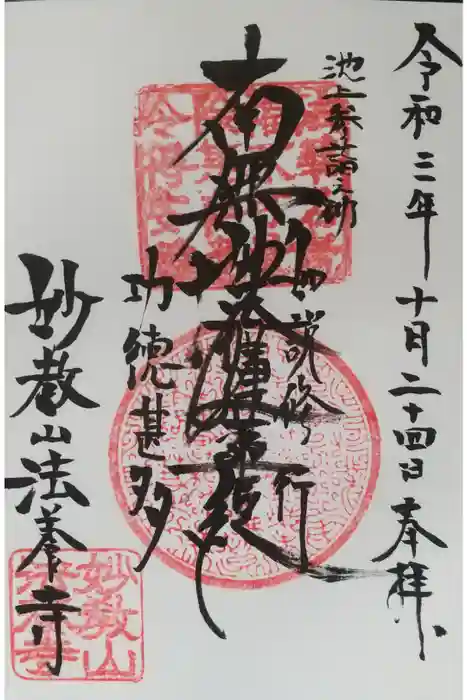 令和三年十月二十四日奉拝
池上参詣之砌
南無妙法蓮華経
如説修行
功徳甚多
妙教山法養寺
妙教山
法養寺